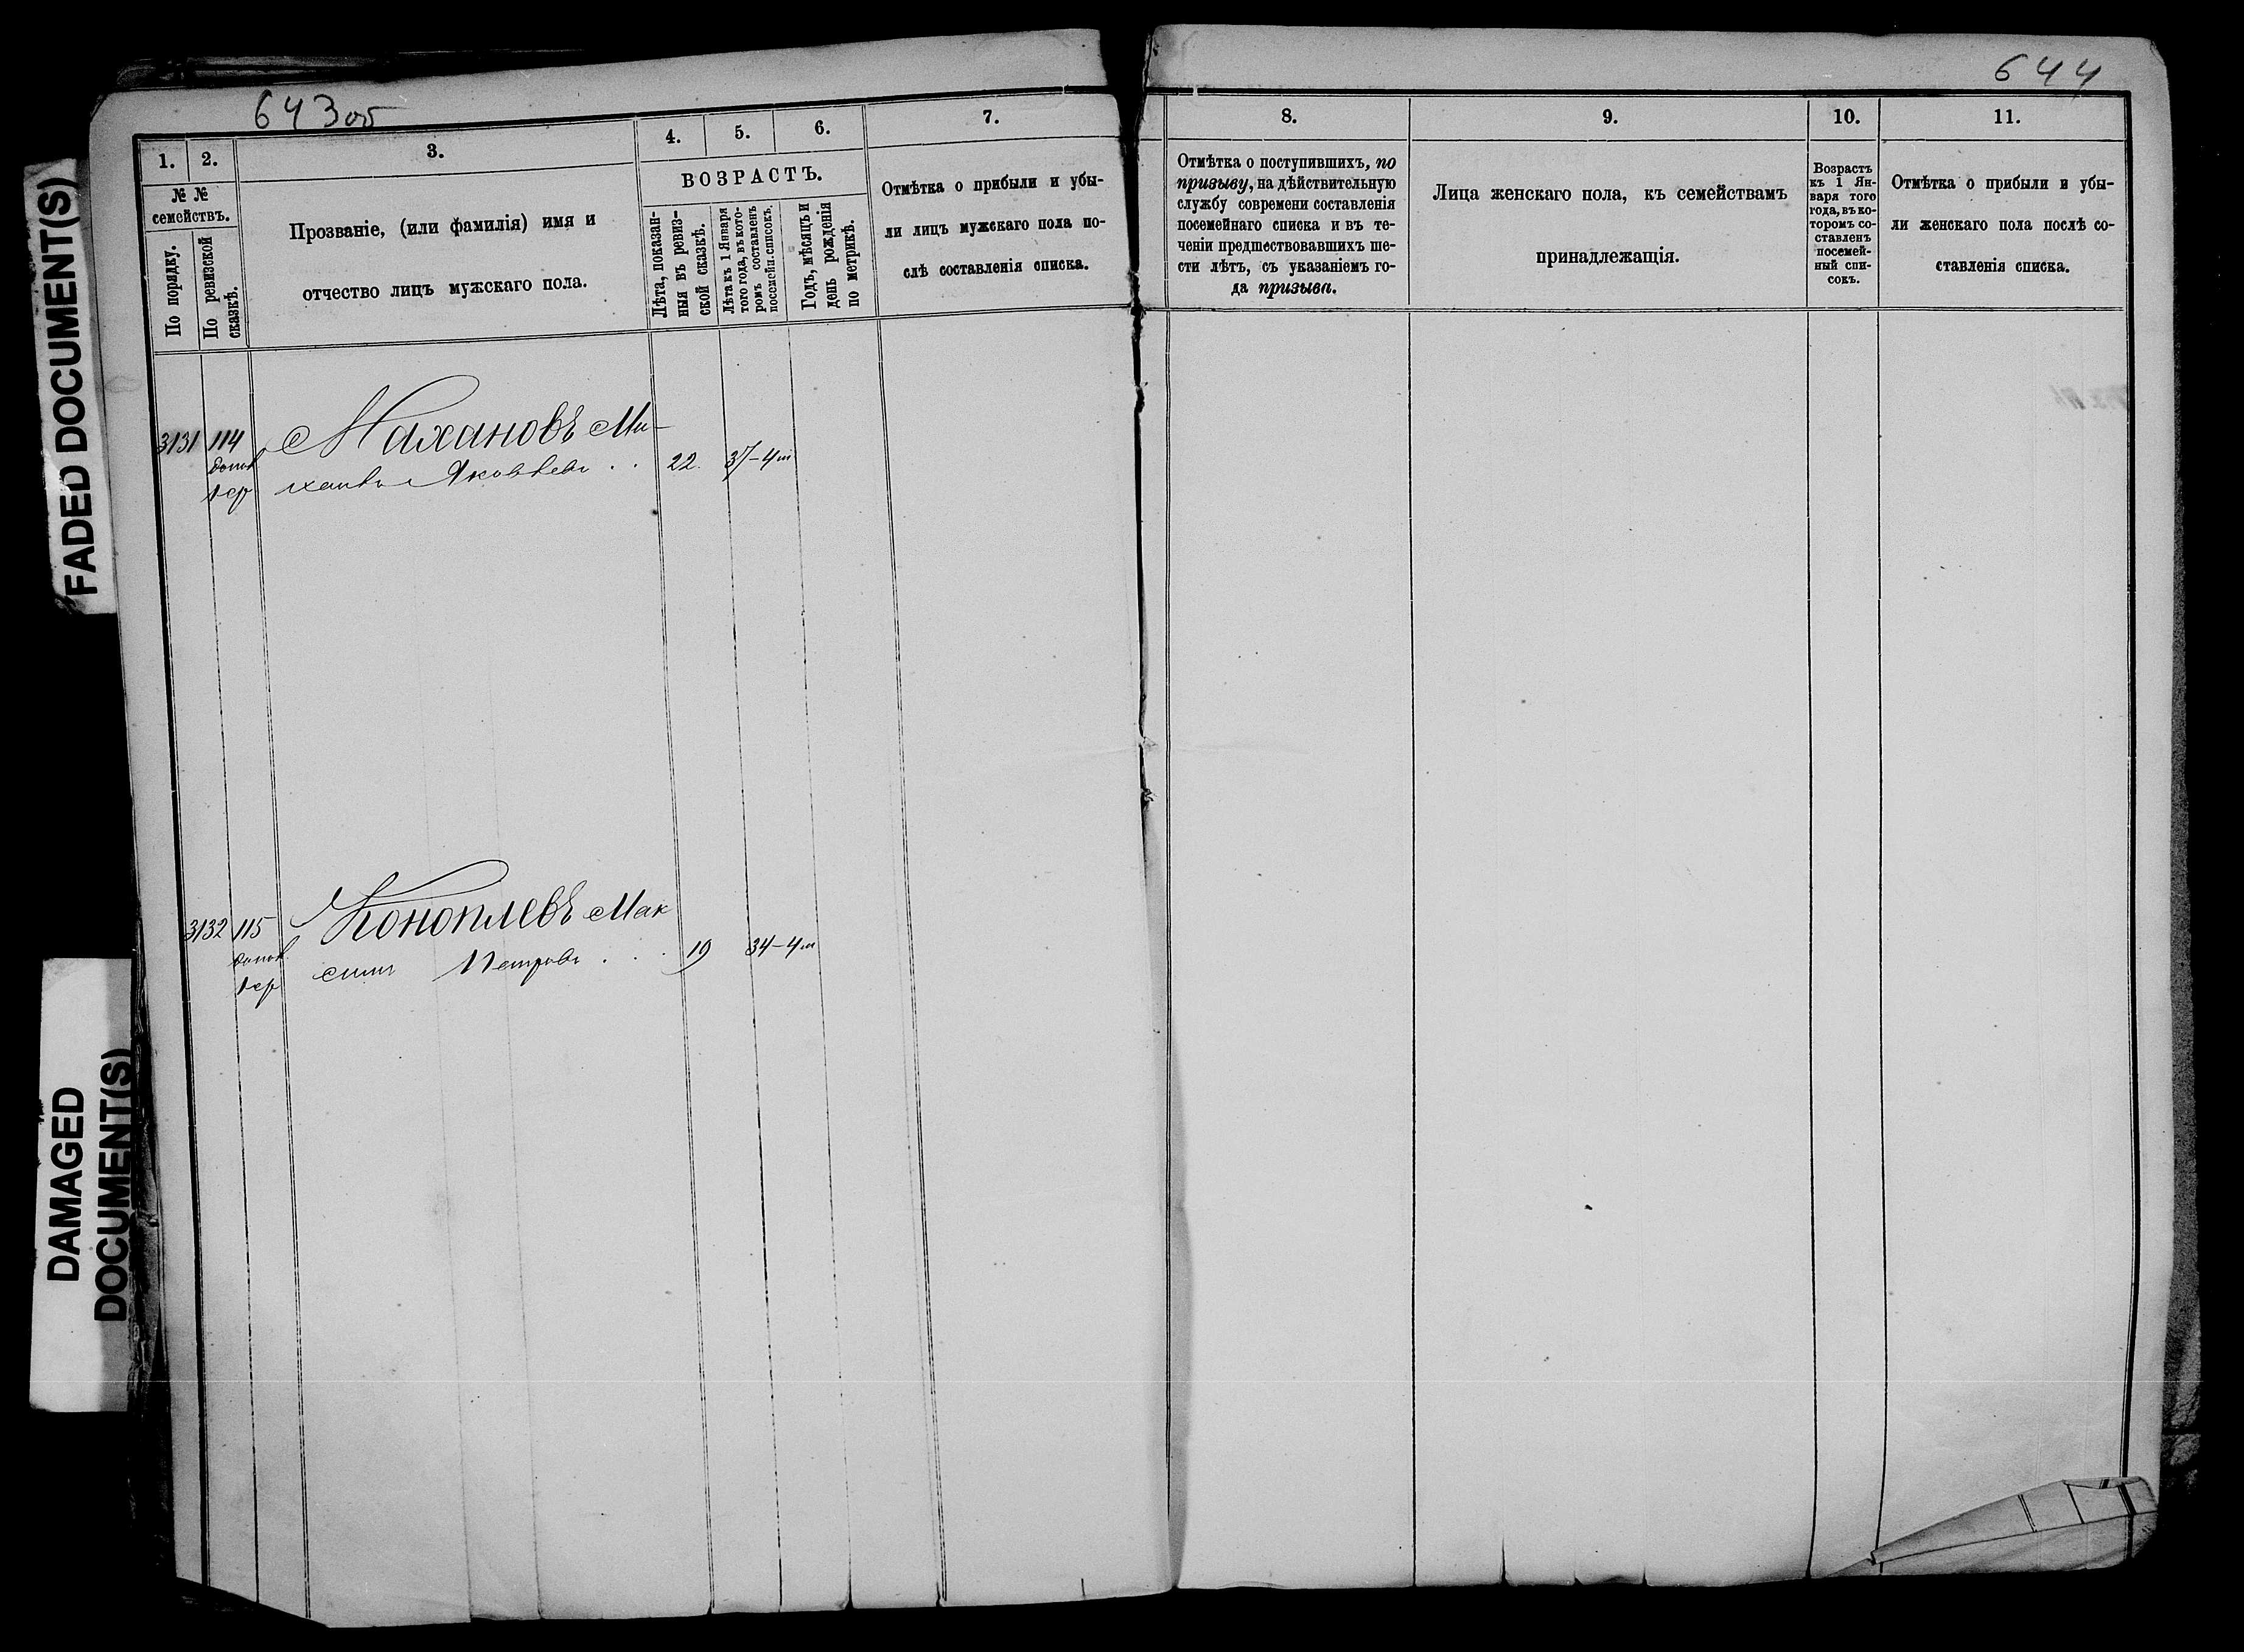 643об
644
FADED DOCUMENT(S)
DAMAGED
DOCUMENT(S)
1.
2.
3.
4.
5.
6.
7.
8.
9.
10.
11.
№ №
семействъ.
По порядку.
По ревизской
сказкѣ.
Прозваніе, (или фамилія) имя и
отчество лицъ мужскаго пола.
ВОЗРАСТЪ.
Лѣта, показан-
ныя въ ревиз-
ской сказкѣ.
Лѣта къ 1 Января
того года, въ кото-
ромъ составленъ
посемейн. списокъ.
Годъ, мѣсяцъ и
день рожденія
по метрикѣ.
Отмѣтка о прибыли и убы-
ли лицъ мужскаго пола по-
слѣ составленія списка.
Отмѣтка о поступившихъ, по
призыву, на дѣйствительную
службу современи составленія
посемейнаго списка и въ те-
ченіи предшествовавшихъ ше-
сти лѣтъ, съ указаніемъ го-
да призыва.
Лица женскаго пола, къ семействамъ
принадлежащія.
Возрастъ
къ 1 Ян-
варя того
года, въ ко-
торомъ со-
ставленъ
посемей-
ный спи-
сокъ.
Отмѣтка о прибыли и убы-
ли женскаго пола послѣ со-
ставленія списка.
3131 114 Махановъ Ми-
допол Яковлевъ . . 22. 37-4м
3132 115 Коноплевъ Мак
допол симъ Петровъ . . . 19 34-4м